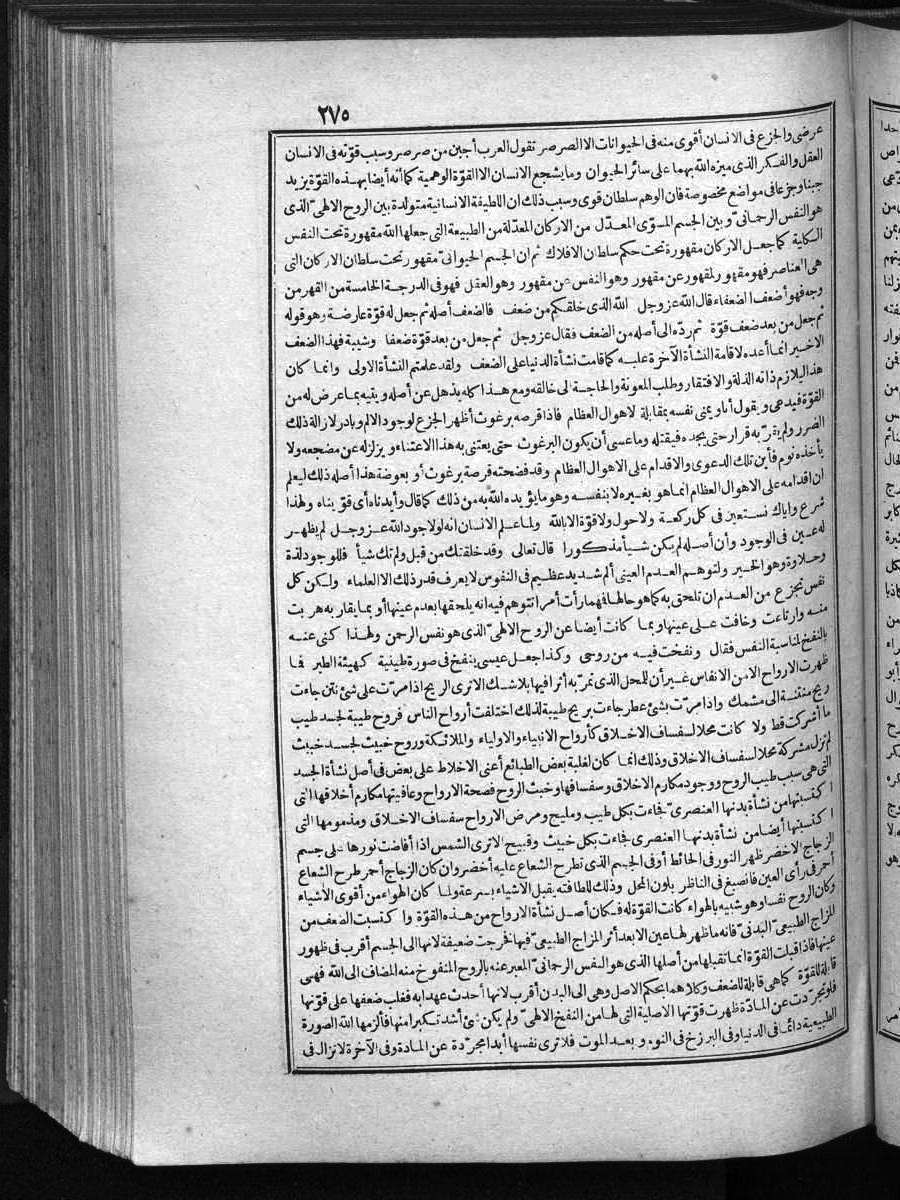 ٢٧٥
عرضى والجزع فى الانسان أقوى منه فى الحيوانات الا الصرصر تقول العرب أجبن من صرصر وسبب قوّته فى الانسان
العقل والفكر الذى ميزه الله بهما على سائر الحيوان وما يشجع الانسان الا القوّة الوهمية كما أنه أيضا بهذه القوّة يزيد
جبنا وجزعا فى مواضع مخصوصة فان الوهم سلطان قوى وسبب ذلك ان اللطيفة الانسانية متولدة بين الروح الالهىّ الذى
هو النفس الرحمانىّ و بين الجسم المسوّى المعدّل من الاركان المعدّلة من الطبيعة التى جعلها الله مقهورة تحت النفس
الكلية كما جعل الاركان مقهورة تحت حكم سلطان الافلاك ثم ان الجسم الحيوانىّ مقهور تحت سلطان الاركان التى
هى العناصر فهو مقهور لمقهور عن مقهور وهو النفس عن مقهور وهو العقل فهو فى الدرجة الخامسة من القهر من
وجه فهو أضعف الضعفاء قال الله عز وجل الله الذى خلقكم من ضعف فالضعف أصله ثم جعل له قوّة عارضة وهو قوله
ثم جعل من بعد ضعف قوّة ثم ردّه الى أصله من الضعف فقال عز وجل ثم جعل من بعد قوّة ضعفا وشيبة فهذا الضعف
الاخير انما أعده لاقامة النشأة الآخرة عليه كما قامت نشأة الدنيا على الضعف ولقد علمتم النشأة الاولى وانما كان
هذا ليلازم ذاته الذلة والافتقار وطلب المعونة والحاجة الى خالقه ومع هذا كله يذهل عن أصله ويتيه بما عرض له من
القوّة فيدعى ويقول أنا و يمنى نفسه بمقابلة الاهوال العظام فاذا قرصه برغوث أظهر الجزع لوجود الالم وبادر لازالة ذلك
الضرر ولم يقرّ به قرار حتى يجده فيقتله وما عسى أن يكون البرغوث حتى يعتنى به هذا الاعتناء و يزلزله عن مضجعه ولا
يأخذه نوم فأين تلك الدعوى والاقدام على الاهوال العظام وقد فضحته قرصة برغوث أو بعوضة هذا أصله ذلك ليعلم
ان اقدامه على الاهوال العظام انما هو بغيره لا بنفسه وهو ما يؤيده الله به من ذلك كما قال وأيدناه أى قوّيناه ولهذا
شرع واياك نستعين فى كل ركعة ولا حول ولا قوّة الا بالله ولما علم الانسان انه لولا جود الله عز وجل لم يظهر
له عين فى الوجود وأن أصله لم يكن شيأ مذكورا قال تعالى وقد خلقتك من قبل ولم تك شيأ فللوجود لذة
وحلاوة وهو الخير ولتوهم العدم العينى ألم شديد عظيم فى النفوس لا يعرف قدر ذلك الا العلماء ولكن كل
نفس تجزع من العدم ان تلحق به كما هو حالها فهما رأت أمرا تتوهم فيه انه يلحقها بعدم عينها أو بما يقاربه هربت
منه وارتاعت وخافت على عينها و بما كانت أيضا عن الروح الالهىّ الذى هو نفس الرحمن ولهذا كنى عنه
بالنفخ لمناسبة النفس فقال ونفخت فيه من روحى وكذا جعل عيسى ينفخ فى صورة طينية كهيئة الطير فما
ظهرت الارواح الا من الانفاس غير أن للمحل الذى تمرّ به أثرا فيها بلا شك الا ترى الريح اذا مرّت على شئ نتن جاءت
ريح منتنة الى مشمك واذا مرّت بشئ عطر جاءت بريح طيبة لذلك اختلفت أرواح الناس فروح طيبة لجسد طيب
ما أشركت قط ولا كانت محلا لسفساف الاخلاق كأرواح الانبياء والاولياء والملائكة وروح خبيث لجسد خبيث
لم تزل مشركة محلا لسفساف الاخلاق وذلك انما كان لغلبة بعض الطبائع أعنى الاخلاط على بعض فى أصل نشأة الجسد
التى هى سبب طيب الروح ووجود مكارم الاخلاق وسفسافها وخبث الروح فصحة الارواح وعافيتها مكارم أخلاقها التى
اكتسبتها من نشأة بدنها العنصرىّ فجاءت بكل طيب ومليح ومرض الارواح سفساف الاخلاق ومذمومها التى
اكتسبتها أيضا من نشأة بدنها العنصرى فجاءت بكل خبيث وقبيح الا ترى الشمس اذا أفاضت نورها على جسم
الزجاج الاخضر ظهر النور فى الحائط أو فى الجسم الذى تطرح الشعاع عليه أخضر وان كان الزجاج أحمر طرح الشعاع
أحمر فى رأى العين فانصبغ فى الناظر بلون المحل وذلك للطافته يقبل الاشياء بسرعة ولما كان الهواء من أقوى الأشياء
وكان الروح نفسا وهو شبيه بالهواء كانت القوّة له فكان أصل نشأة الارواح من هذه القوّة واكتسبت الضعف من
المزاج الطبيعىّ البدنىّ فانه ما ظهر لها عين الا بعد أثر المزاج الطبيعىّ فيها فخرجت ضعيفة لانها الى الجسم أقرب فى ظهور
عينها فاذا قبلت القوّة انما تقبلها من أصلها الذى هو النفس الرحمانىّ المعبر عنه بالروح المنفوخ منه المضاف الى الله فهى
قابلة للقوّة كما هى قابلة للضعف وكلاهما بحكم الاصل وهى الى البدن أقرب لانها أحدث عهدا به فغلب ضعفها على قوّتها
فلو تجرّدت عن المادّة ظهرت قوّتها الاصلية التى لها من النفخ الالهىّ ولم يكن شئ أشد تكبرا منها فألزمها الله الصورة
الطبيعية دائما فى الدنيا وفى البرزخ فى النوم و بعد الموت فلا ترى نفسها أبدا مجرّدة عن المادة وفى الآخرة لا تزال فى